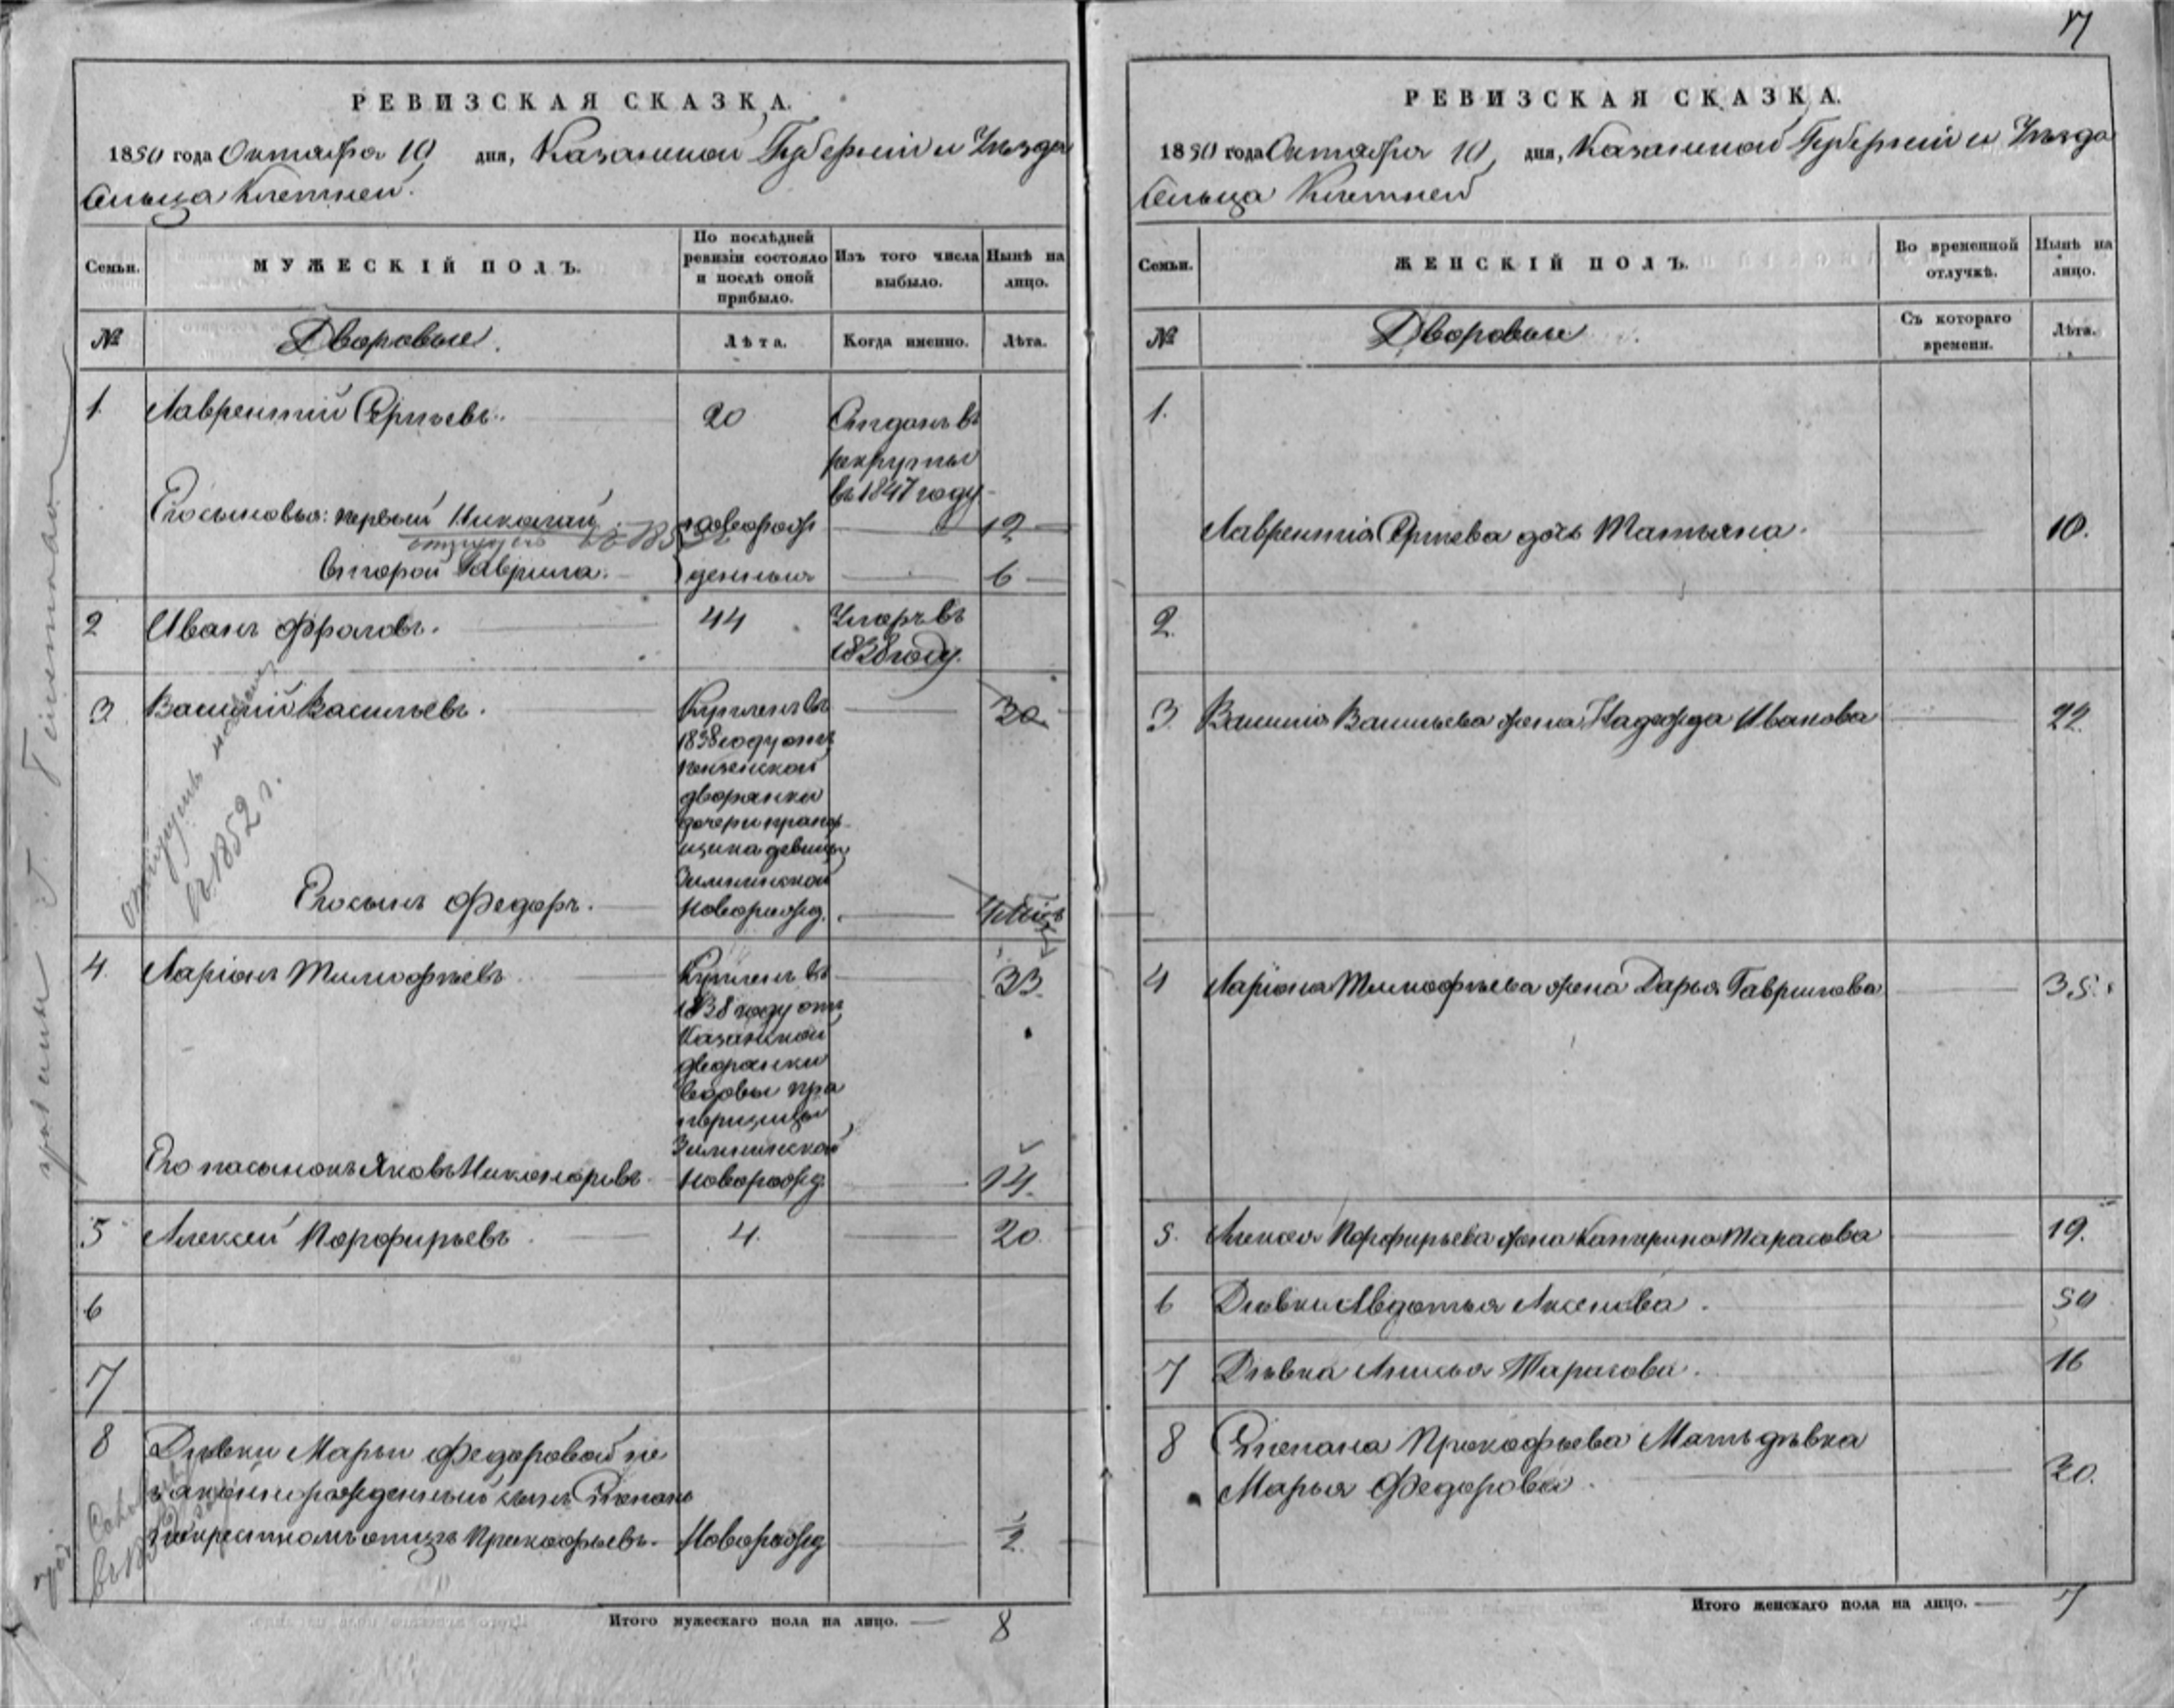 17
РЕВИЗСКАЯ СКАЗКА.
1850 года Октября 10 дня, Казанской Губерніи и Уѣзда
Сельца Клетней.
Семьи.
МУЖЕСКІЙ ПОЛЪ.
По послѣдней
ревизіи состояло
и послѣ оной
прибыло.
Изъ того числа
выбыло.
Нынѣ на
лицо.
№
Дворовые.
Лѣта.
Когда именно.
Лѣта.
1. Лаврентій Сергѣевъ. 20 Отданъ въ
рекруты
въ 1847 году
Его сыновья: первый Николай новорож 12
отпущенъ
второй Гаврила. денныя 6
2 Иванъ Фроловъ. 44 Умеръ въ
1838 году.
3 Василій Васильевъ. Купленъ въ 30
1838 году отъ
Пензенской
дворянки
дочери прапор
щика девицы
Его сынъ Федоръ. Новорожд.
отпущенъ
въ 1852 г.
4. Ларіонъ Тимофѣевъ Купленъ въ 33.
1838 году отъ
Казанской
дворянки
вдовы пра
порщицы
Его пасынокъ Яковъ Никоноровъ Новорожд. 14.
5 Алексей Порфирьевъ 4. 20
6
7
8 Дѣвки Марьи Федоровой не
законнорожденный сынъ Степанъ
по крестномъ отцѣ Прокофьевъ. Новорожд 1/2
Итого мужескаго пола на лицо. 8
РЕВИЗСКАЯ СКАЗКА.
1850 года Октября 10, дня, Казанской Губерніи и Уѣзда
Сельца Клетней
Семьи.
ЖЕНСКІЙ ПОЛЪ.
Во временной
отлучкѣ.
Нынѣ на
лицо.
№
Дворовые
Съ котораго
времени.
Лѣта.
1.
Лаврентія Сергѣева дочь Татьяна. 10.
2.
3. Василія Васильева жена Надежда Иванова 22.
4 Ларіона Тимофѣева жена Дарья Гаврилова 35.
5. Алексея Порфирьева жена Катерина Тарасова 19.
6 Дѣвка Авдотья Аксенова. 50
7 Дѣвка Анисья Тарасова. 16
8 Степана Прокофьева Мать дѣвка
Марья Федорова. 20.
Итого женскаго пола на лицо. 7